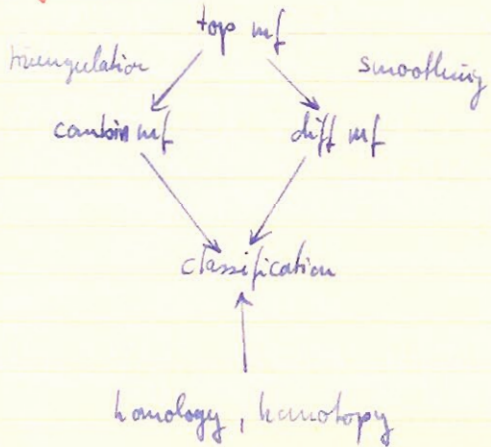 top mf
triangulation smoothing
combin mf diff mf
classification
homology, homotopy